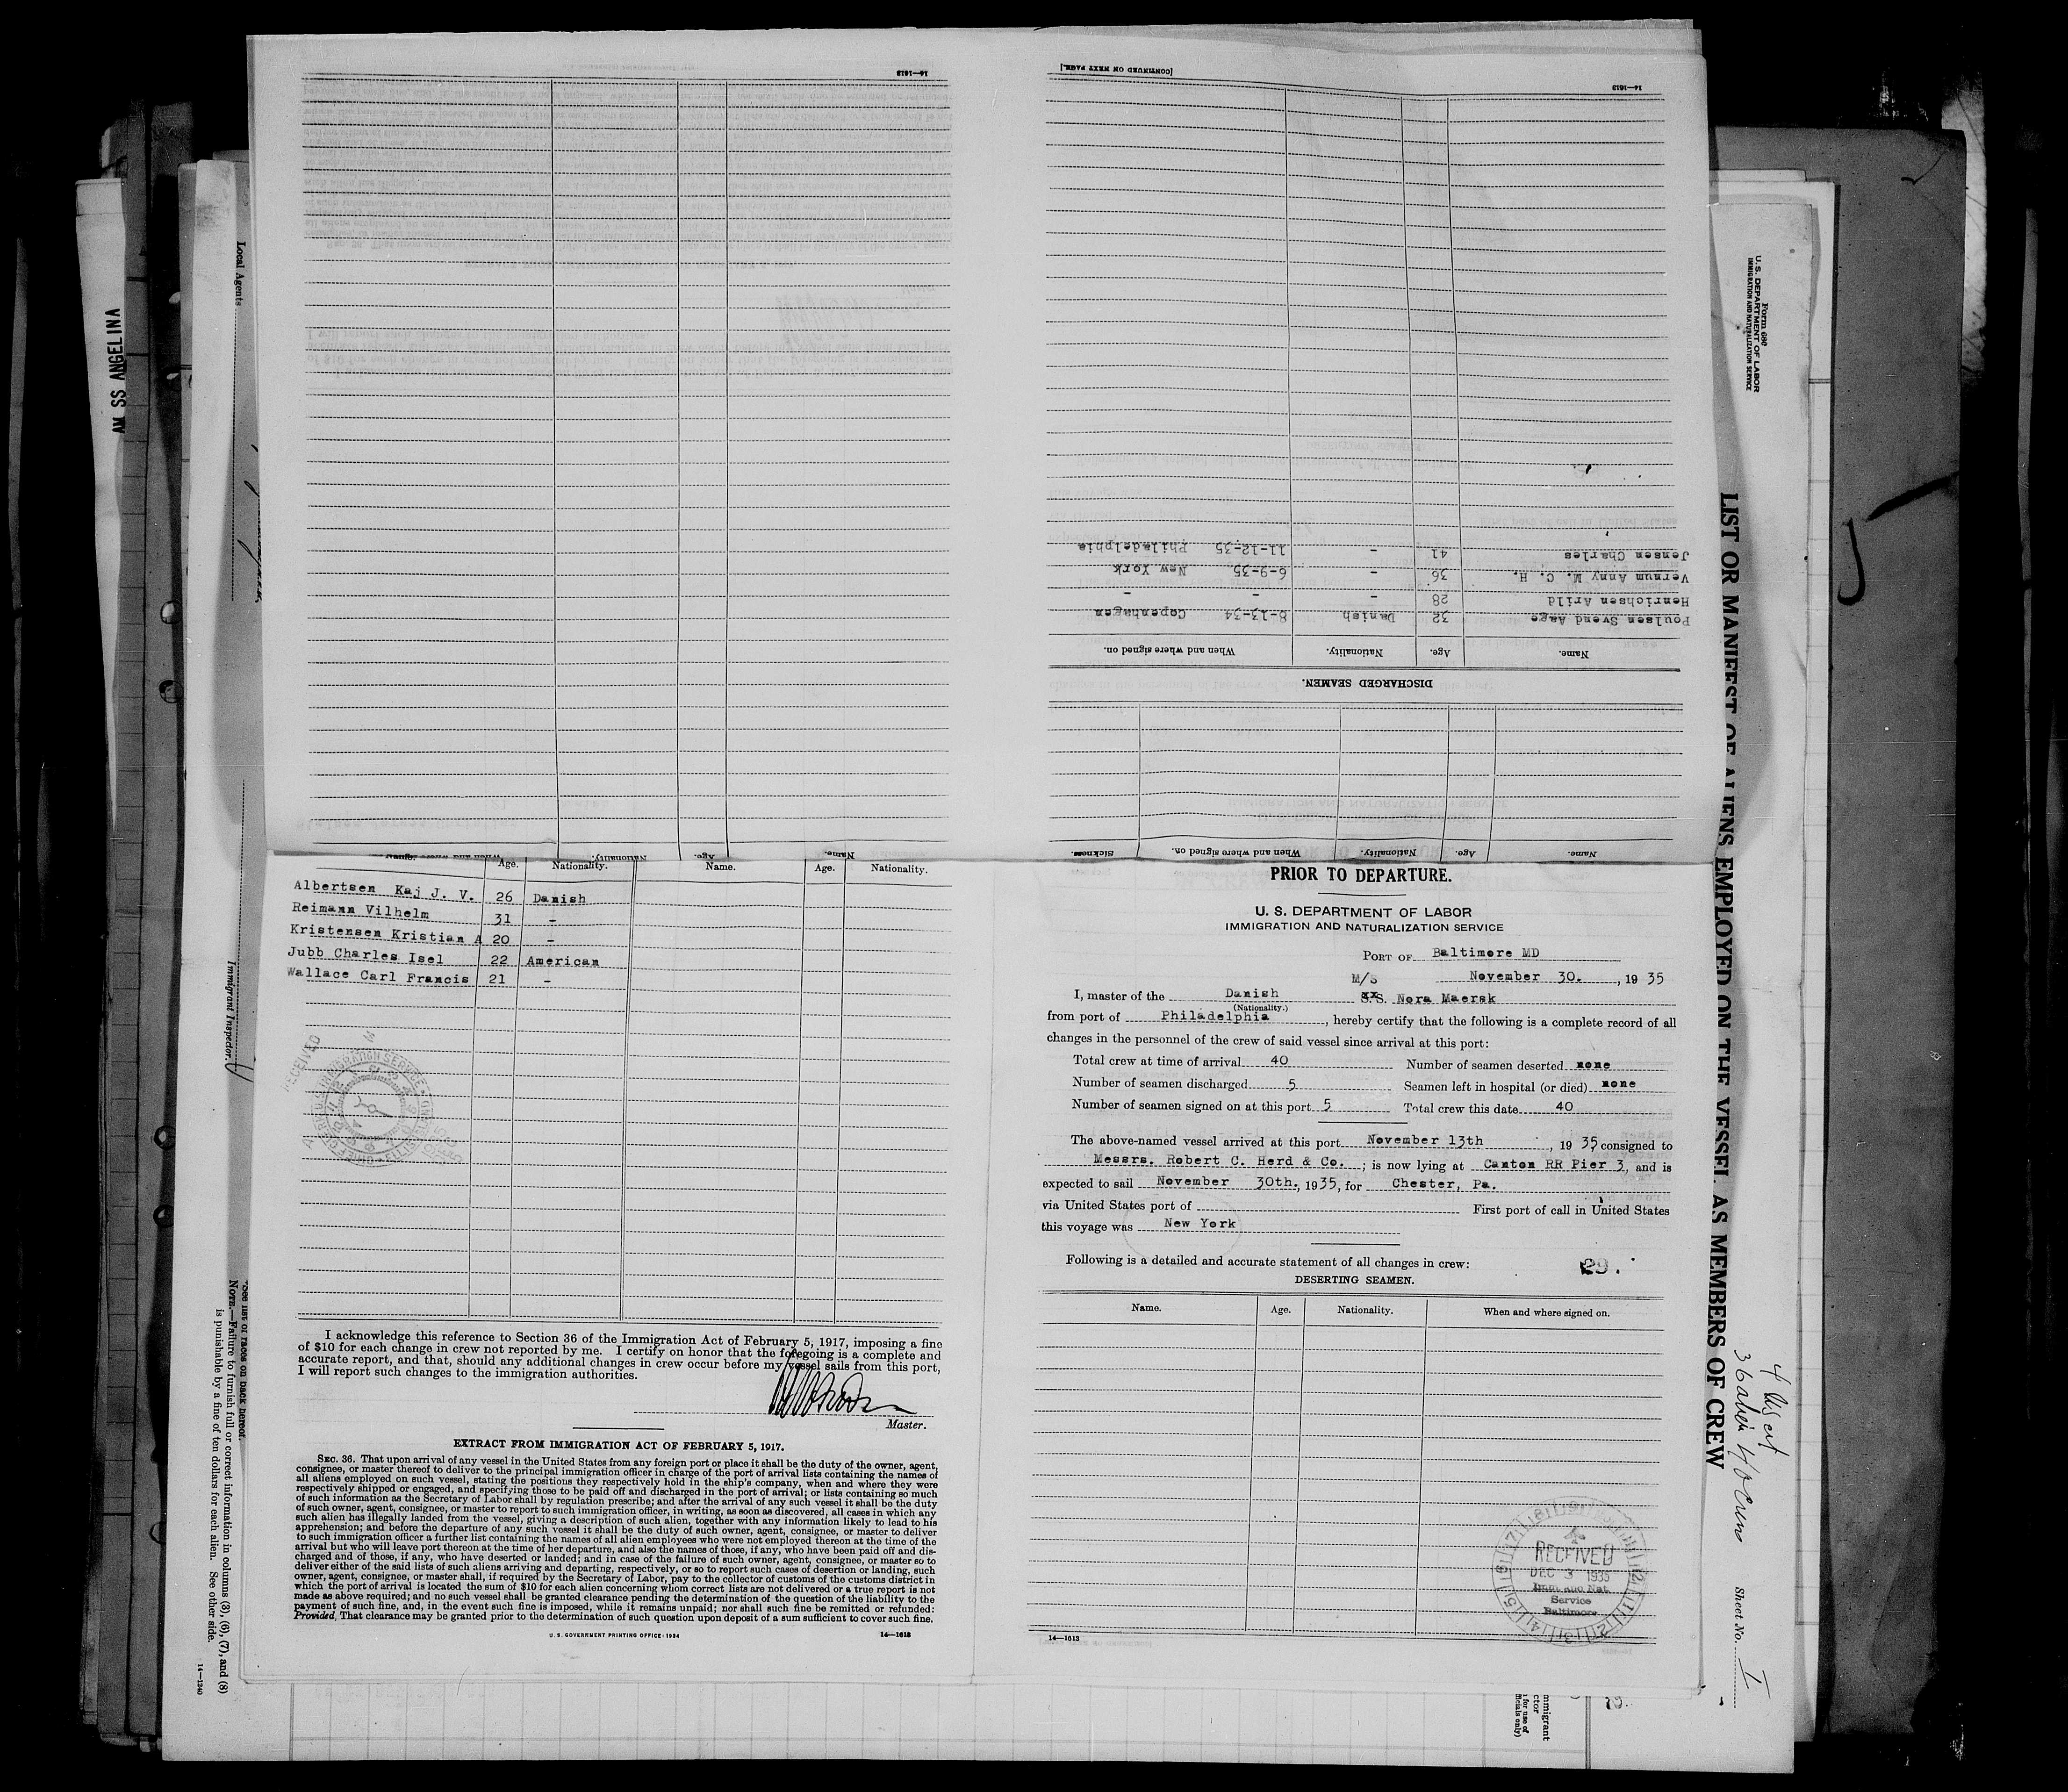 14—1613
[CONTINUED ON NEXT PAGE.]
14—1613
Jensen Charles 41 - 11-12-35 Philadelphia
Vernum Anny M. C. H. 36 - 6-9-35 New York
Henrichsen Arild 28 - - -
Poulsen Svend Aage 32 Danish 8-13-34 Copenhagen
Name. Age. Nationality. When and where signed on.
DISCHARGED SEAMEN.
Name. Age. Nationality. When and where signed on. Sickness.
Name. Age. Nationality. When and where signed
Age. Nationality. Name. Age. Nationality.
Albertsen Kaj J. V. 26 Danish
Reimann Vilhelm 31 -
Kristensen Kristian A 20 -
Jubb Charles Isel 22 American
Wallace Carl Francis 21 -
RECEIVED
I acknowledge this reference to Section 36 of the Immigration Act of February 5, 1917, imposing a fine
of $10 for each change in crew not reported by me. I certify on honor that the foregoing is a complete and
accurate report, and that, should any additional changes in crew occur before my vessel sails from this port,
I will report such changes to the immigration authorities.
Master.
EXTRACT FROM IMMIGRATION ACT OF FEBRUARY 5, 1917.
SEC. 36. That upon arrival of any vessel in the United States from any foreign port or place it shall be the duty of the owner, agent,
consignee, or master thereof to deliver to the principal immigration officer in charge of the port of arrival lists containing the names of
all aliens employed on such vessel, stating the positions they respectively hold in the ship's company, when and where they were
respectively shipped or engaged, and specifying those to be paid off and discharged in the port of arrival; or lists containing so much
of such information as the Secretary of Labor shall by regulation prescribe; and after the arrival of any such vessel it shall be the duty
of such owner, agent, consignee, or master to report to such immigration officer, in writing, as soon as discovered, all cases in which any
such alien has illegally landed from the vessel, giving a description of such alien, together with any information likely to lead to his
apprehension; and before the departure of any such vessel it shall be the duty of such owner, agent, consignee, or master to deliver
to such immigration officer a further list containing the names of all alien employees who were not employed thereon at the time of the
arrival but who will leave port thereon at the time of her departure, and also the names of those, if any, who have been paid off and dis-
charged and of those, if any, who have deserted or landed; and in case of the failure of such owner, agent, consignee, or master so to
deliver either of the said lists of such aliens arriving and departing, respectively, or so to report such cases of desertion or landing, such
owner, agent, consignee, or master shall, if required by the Secretary of Labor, pay to the collector of customs of the customs district in
which the port of arrival is located the sum of $10 for each alien concerning whom correct lists are not delivered or a true report is not
made as above required; and no such vessel shall be granted clearance pending the determination of the question of the liability to the
payment of such fine, and, in the event such fine is imposed, while it remains unpaid; nor shall such fine be remitted or refunded:
Provided, That clearance may be granted prior to the determination of such question upon deposit of a sum sufficient to cover such fine.
U. S. GOVERNMENT PRINTING OFFICE: 1934 14—1613
PRIOR TO DEPARTURE.
U. S. DEPARTMENT OF LABOR
IMMIGRATION AND NATURALIZATION SERVICE
PORT OF Baltimore MD
November 30. , 19 35
M/S
I, master of the Danish S.S. Nora Maersk
(Nationality.)
from port of Philadelphia , hereby certify that the following is a complete record of all
changes in the personnel of the crew of said vessel since arrival at this port:
Total crew at time of arrival 40 Number of seamen deserted none
Number of seamen discharged 5 Seamen left in hospital (or died) none
Number of seamen signed on at this port 5 Total crew this date 40
The above-named vessel arrived at this port November 13th , 19 35 consigned to
Messrs. Robert C. Herd & Co. ; is now lying at Canton RR Pier 3, and is
expected to sail November 30th, 1935, for Chester, Pa.
via United States port of First port of call in United States
this voyage was New York
Following is a detailed and accurate statement of all changes in crew: 29.
DESERTING SEAMEN.
Name. Age. Nationality. When and where signed on.
RECEIVED
DEC 3 1935
Imm. and Nat.
Service
Baltimore
14—1613
AM SS ANGELINA
Local Agents
Immigrant Inspector.
*See list of races on back hereof.
NOTE.—Failure to furnish full or correct information in columns (3), (6), (7), and (8)
is punishable by a fine of ten dollars for each alien. See other side.
14—1240
Form 680
U. S. DEPARTMENT OF LABOR
IMMIGRATION AND NATURALIZATION SERVICE
LIST OR MANIFEST OF ALIENS EMPLOYED ON THE VESSEL AS MEMBERS OF CREW
4 US cit
36 alien 40 crew
Sheet No. I
mmigrant
ctor
for use of
ficials only)